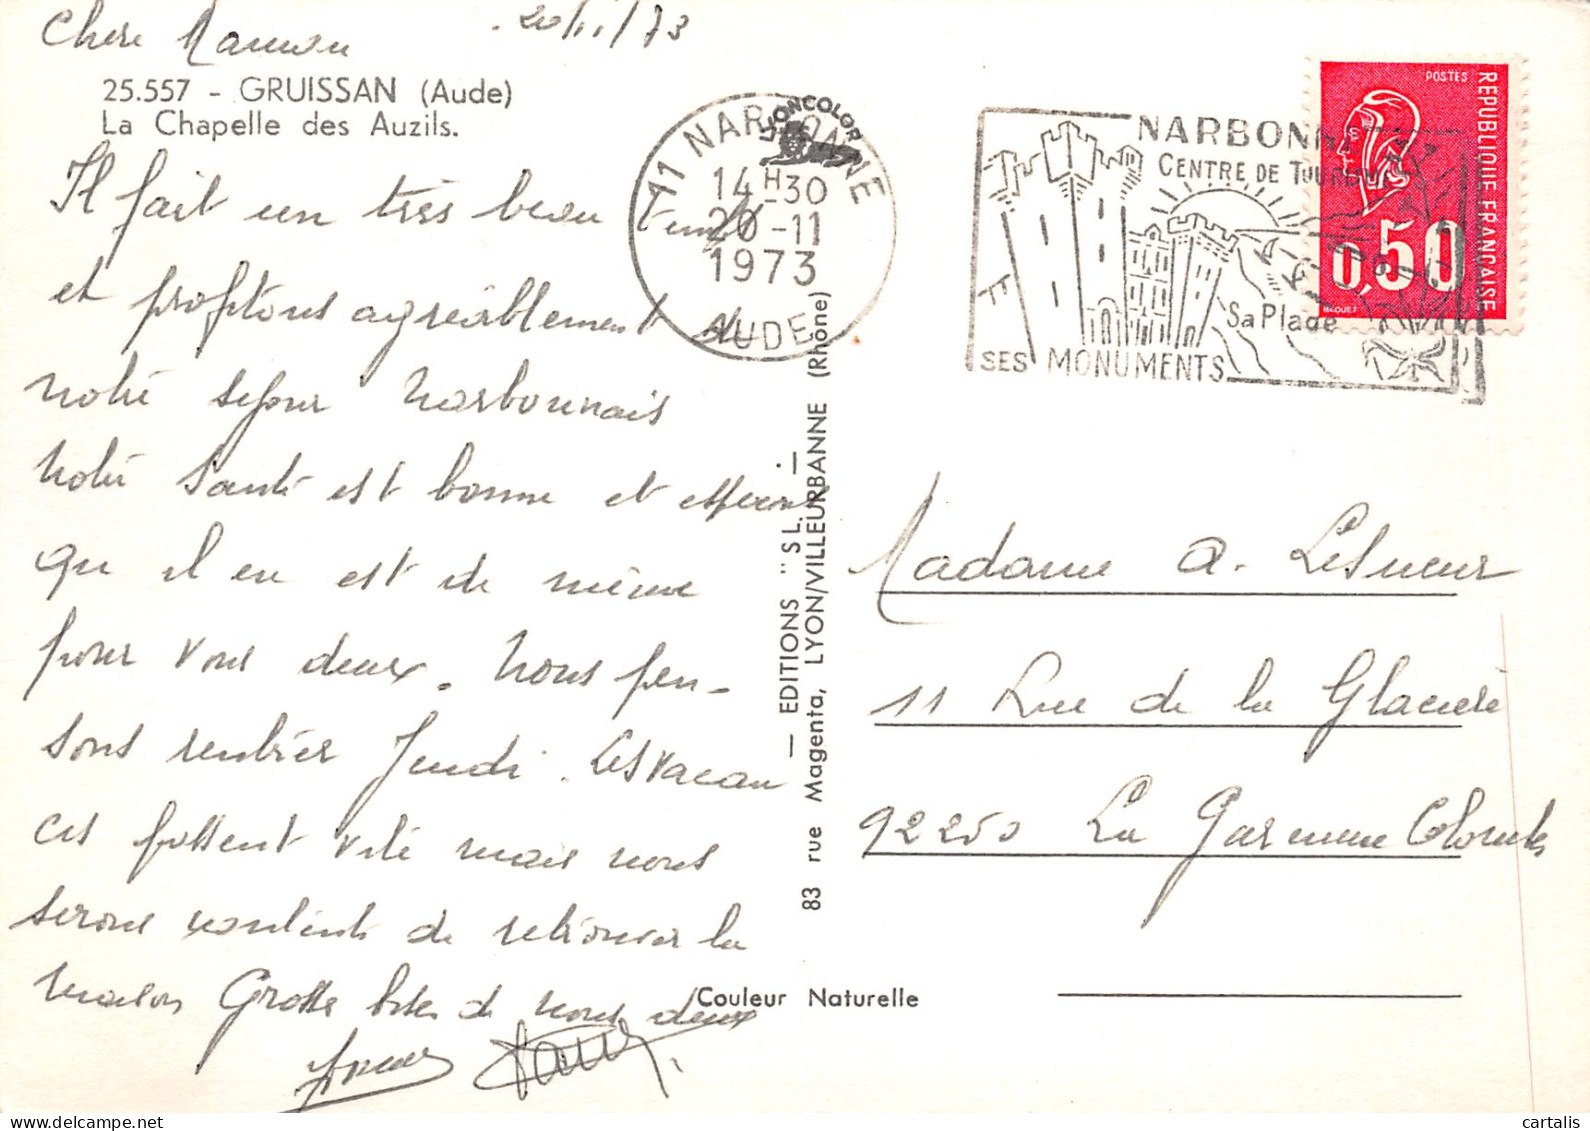 Chère Maman
20/11/73
25.557 - GRUISSAN (Aude)
La Chapelle des Auzils.
Il fait un très beau temps
et profitons agréablement de
notre séjour narbonnais
notre santé est bonne et espérons
qu il en est de même
pour vous deux. Nous pen-
sons rentrer Jeudi. Les vacan
ces passent vite mais nous
serons contents de retrouver la
maison Grosses bises de nous deux
LYONCOLOR
11 NARBONNE
14H30
20-11
1973
AUDE
NARBONNE
CENTRE DE TOURISME
Sa Plage
SES MONUMENTS
POSTES
REPUBLIQUE FRANÇAISE
0,50
BEQUET
— EDITIONS "SL" —
83 rue Magenta, LYON/VILLEURBANNE (Rhône)
Madame A. Lesueur
11 Rue de la Glacière
92250 La Garenne Colombes
Couleur Naturelle